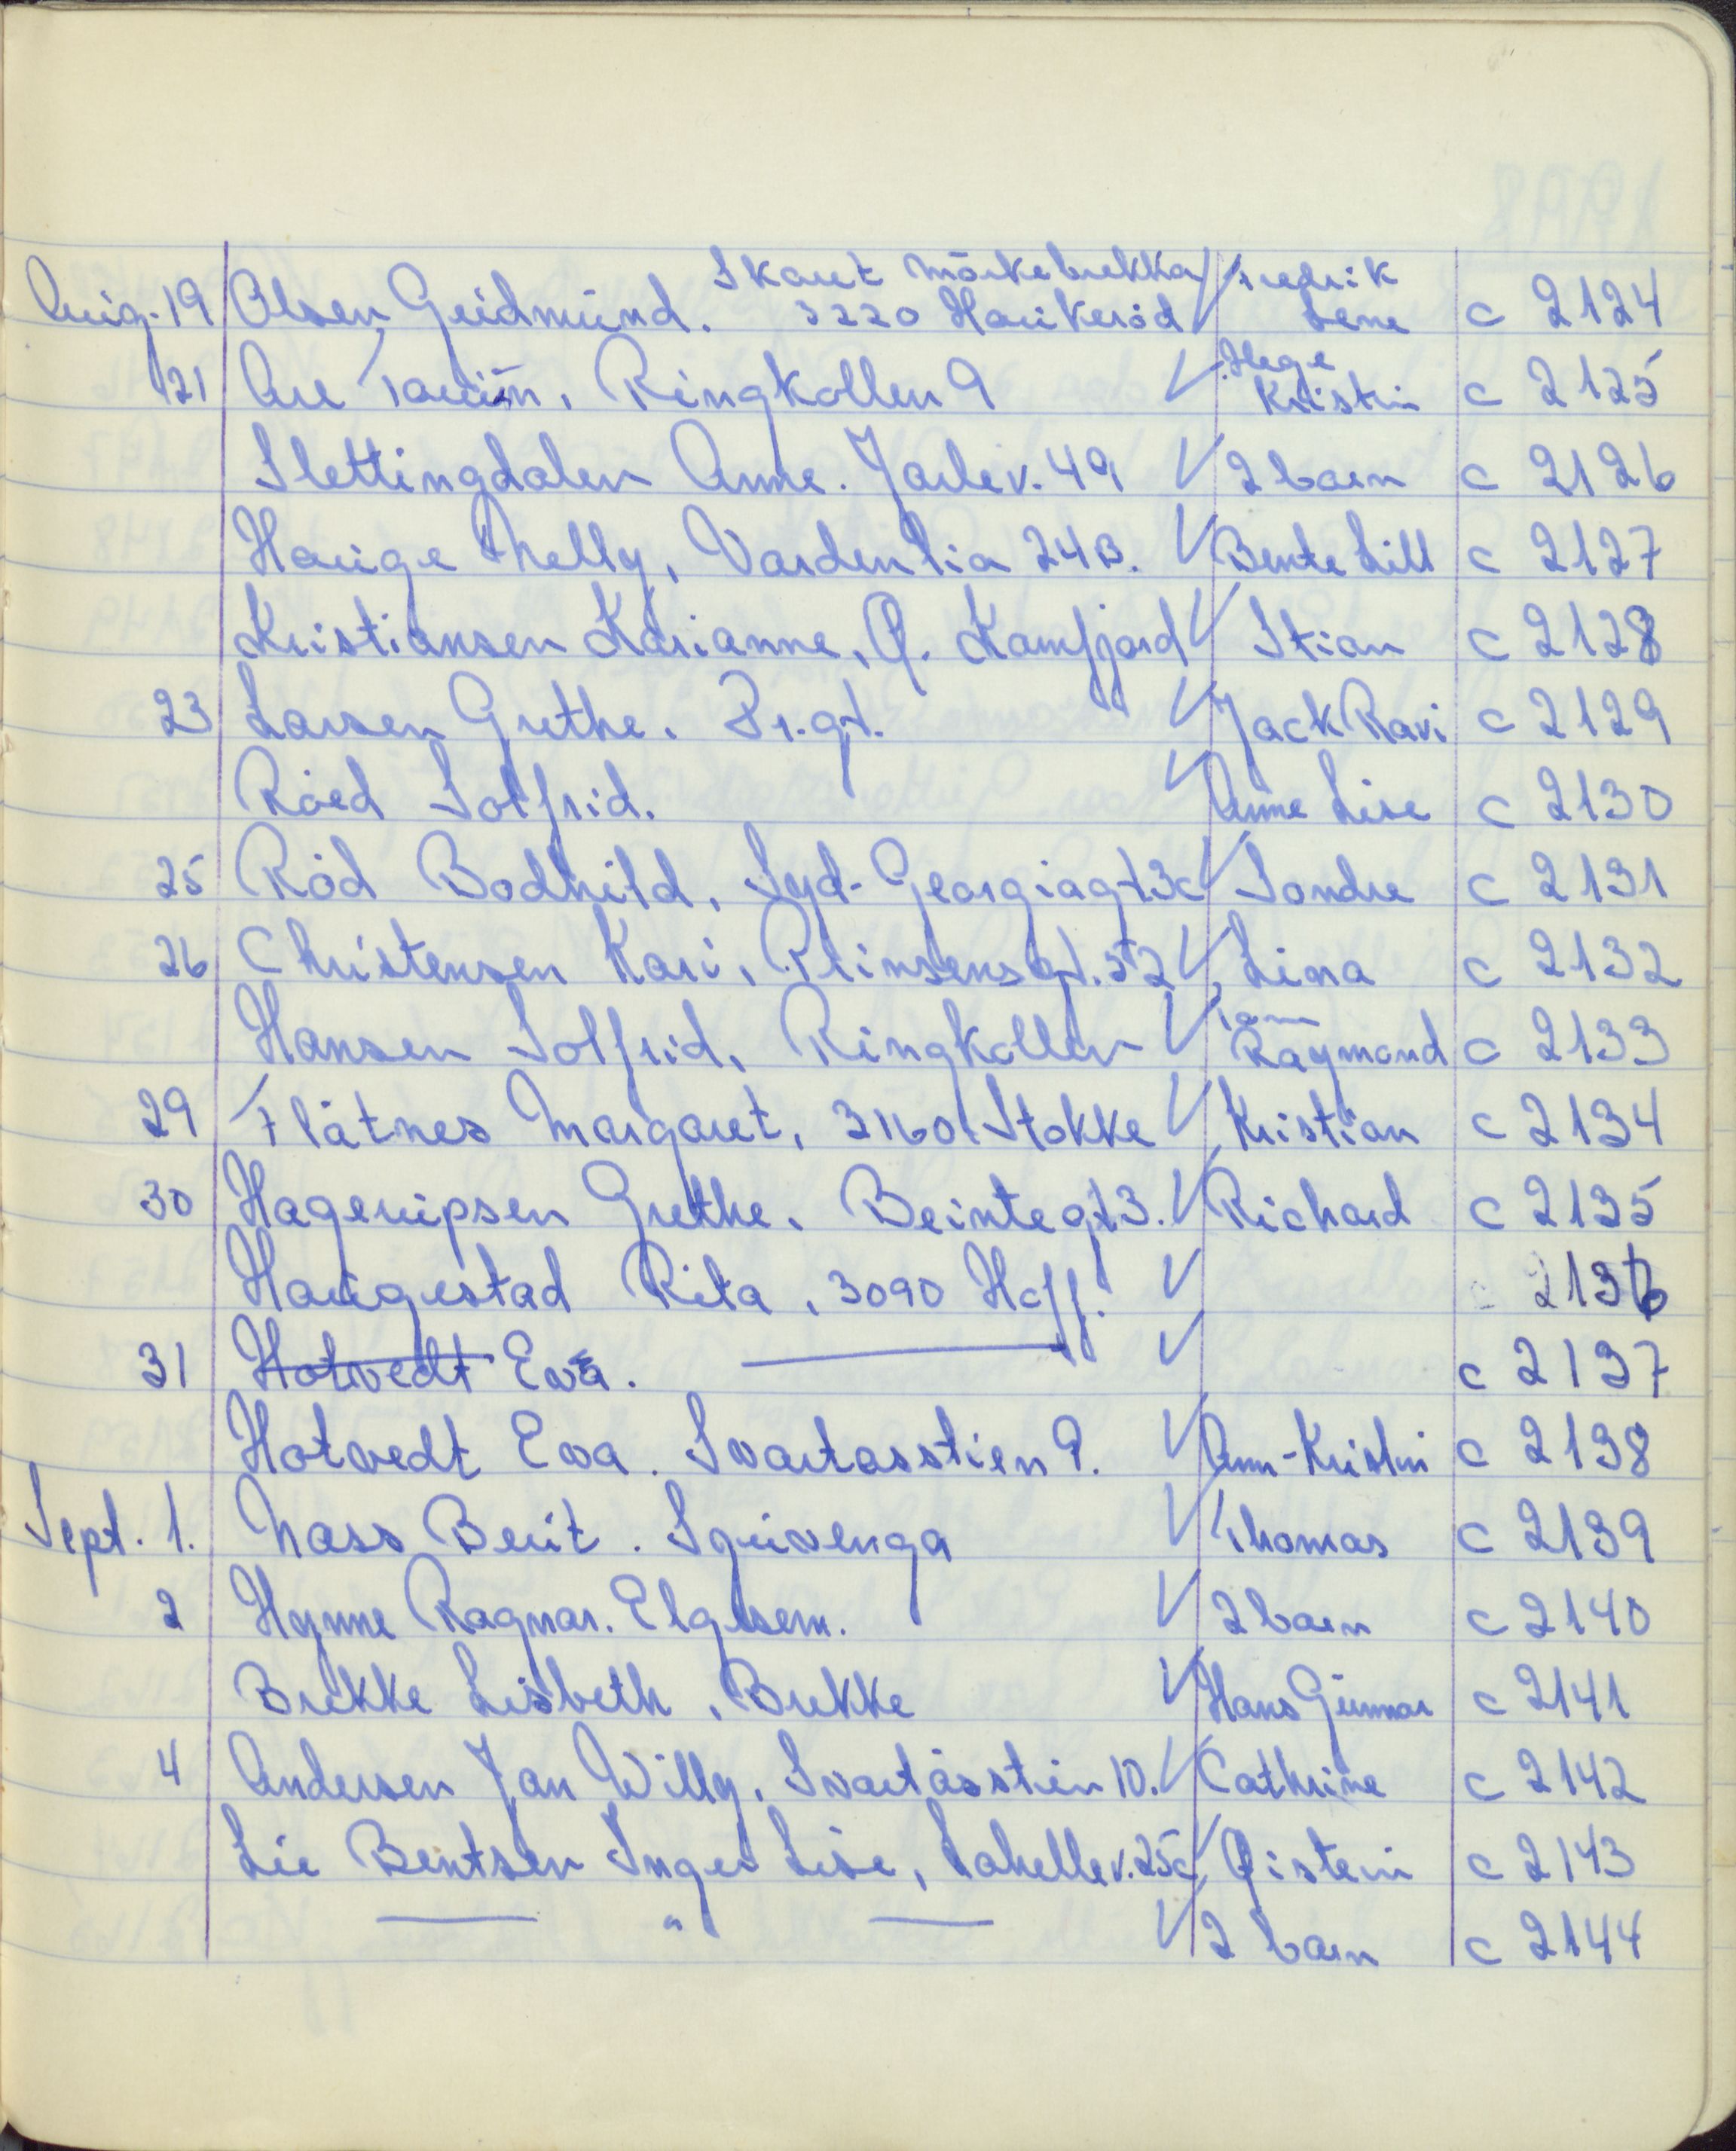 Skaut Mörkebrekka ✓ Fredrik
Aug. 19 Olsen, Gudmund. 3220 Haukeröd Lene c 2124
Hege
21 Aue Taurin, Ringkollen 9 ✓ Kristin c 2125
Slettingdalen Anne. Jarlev. 49 ✓ 2 barn c 2126
Hauge Nelly, Vardenlia 24B. ✓ Bente Lill c 2127
Kristiansen Karianne, Ø. Kamfjord ✓ Stian c 2128
23 Larsen Grethe. Pr.gt. ✓ Jack Ravi c 2129
Röed Solfrid. ✓ Anne Lise c 2130
25 Röd Bodhild, Syd-Georgiagt 3c ✓ Sondre c 2131
26 Christensen Kari, Prinsensgt. 52 ✓ Lina c 2132
Tom
Hansen Solfrid, Ringkollen ✓ Raymond c 2133
29 Flåtnes Margaret, 3160 Stokke ✓ Kristian c 2134
30 Hagerupsen Grethe. Beintegt 3. ✓ Richard c 2135
Haugestad Rita, 3090 Hoff. ✓ c 2136
31 Hotvedt Eva. — ✓ c 2137
Hotvedt Eva. Svartåsstien 9. ✓ Ann-Kristin c 2138
Sept. 1. Nass Berit. Sguvenga ✓ Thomas c 2139
2 Hynne Ragnar. Elgesem. ✓ 2 barn c 2140
Brekke Lisbeth, Brekke ✓ Hans Gunnar c 2141
4 Andersen Jan Willy. Svartåsstien 10. ✓ Cathrine c 2142
Lie Bentsen Inger Lise, Lahellev. 25c ✓ Øistein c 2143
— " — ✓ 2 barn c 2144